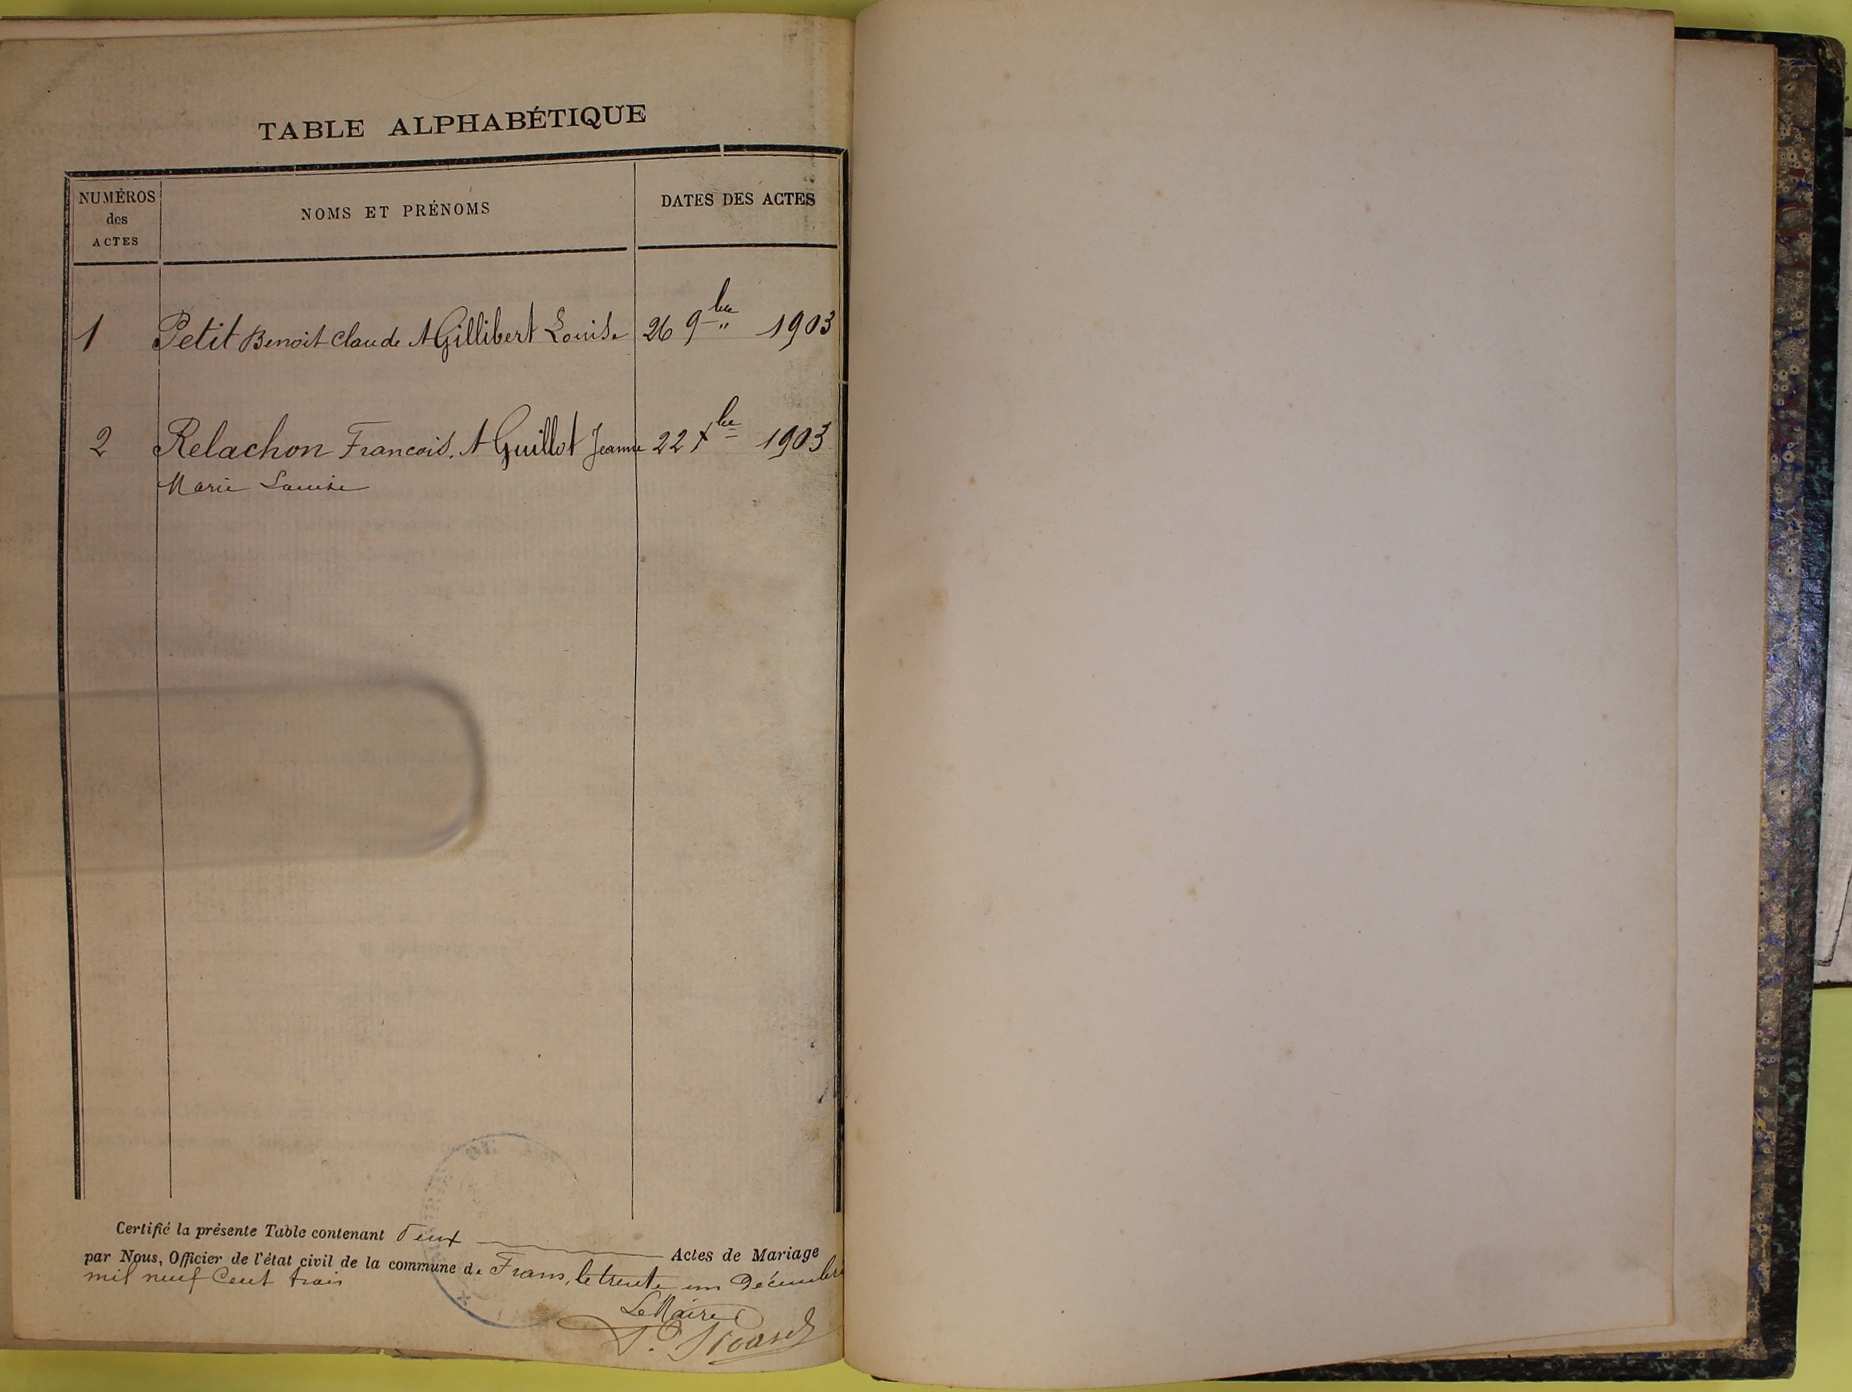 TABLE ALPHABÉTIQUE
NUMÉROS
des
ACTES
NOMS ET PRÉNOMS
DATES DES ACTES
1 Petit Benoit Claude & Gillibert Louise 26 9bre 1903
2 Relachon Francois. & Guillot Jeanne 22 Xbre 1903
Marie Louise
Certifié la présente Table contenant Deux Actes de Mariage
par Nous, Officier de l'état civil de la commune de Frans, le trente un Décembre
mil neuf Cent trois
Le Maire